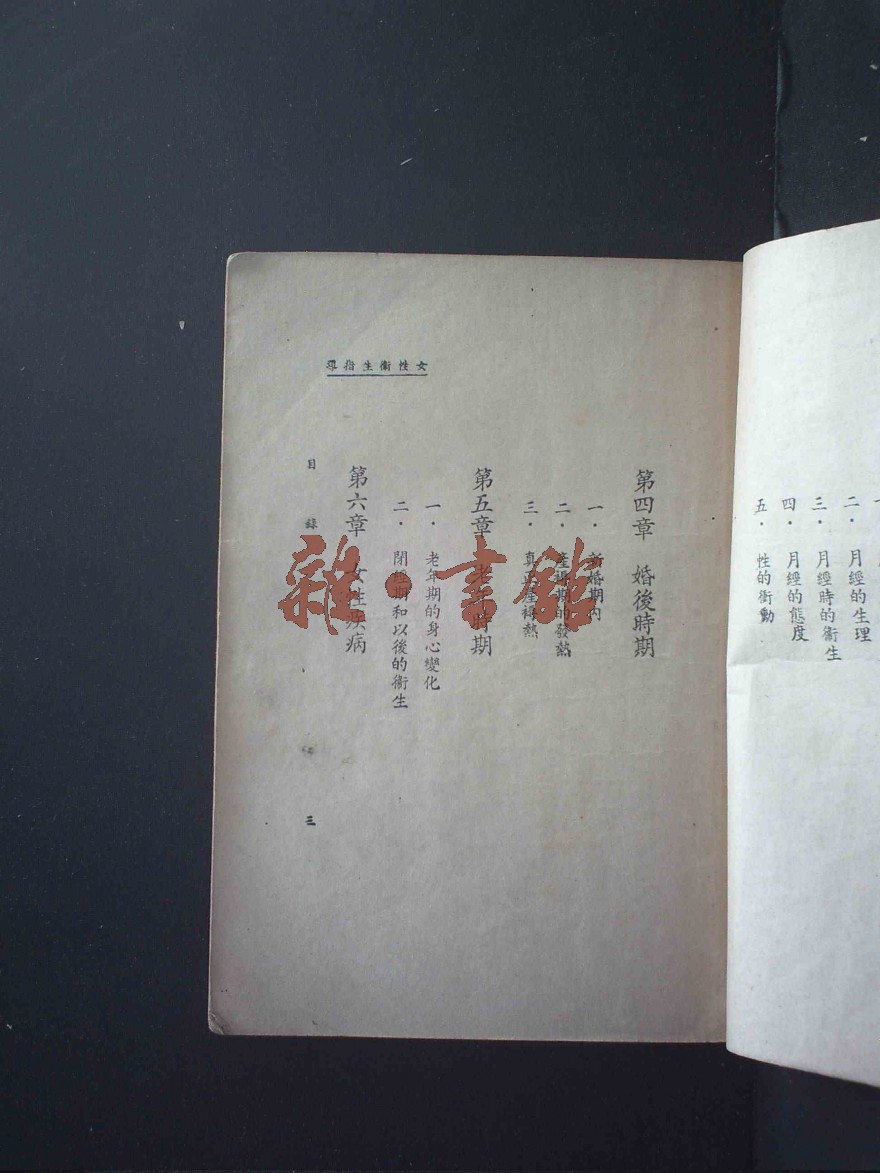 二．　月經的生理
三．　月經時的衞生
四．　月經的態度
五．　性的衝動
女性衞生指導
第四章　婚後時期
一．　新婚期內
二．　產褥期的發熱
三．　真正產褥熱
第五章　老年時期
一．　老年期的身心變化
二．　閉經期和以後的衞生
第六章　女性疾病
目錄
三
雜·書館